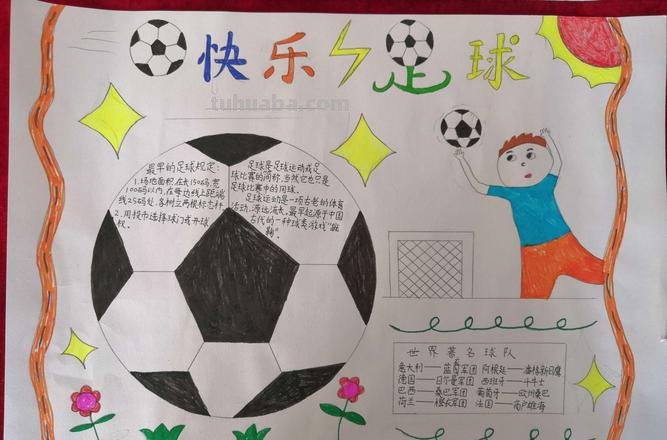 快乐足球
tuhuaba.com
最早的足球规定:
1.场地面积,在大150码,宽
100码以内,在每边线上距端
线25码处,各树立两根标志杆
2.用投币选择球门或开球
权。
足球是足球运动或足
球比赛的简称,当然它也只是
足球比赛中的用球。
足球运动是一项古老的体育
活动,源远流长。最早起源于中国
古代的一种球类游戏“蹴
鞠”。
世界著名球队
意大利——蓝勇军团 阿根廷——潘格斯目鹰
德国——日尔曼军团 西班牙——斗牛士
巴西——桑巴军团 葡萄牙——欧洲桑巴
荷兰——橙衣军团 法国——高卢雄鸡